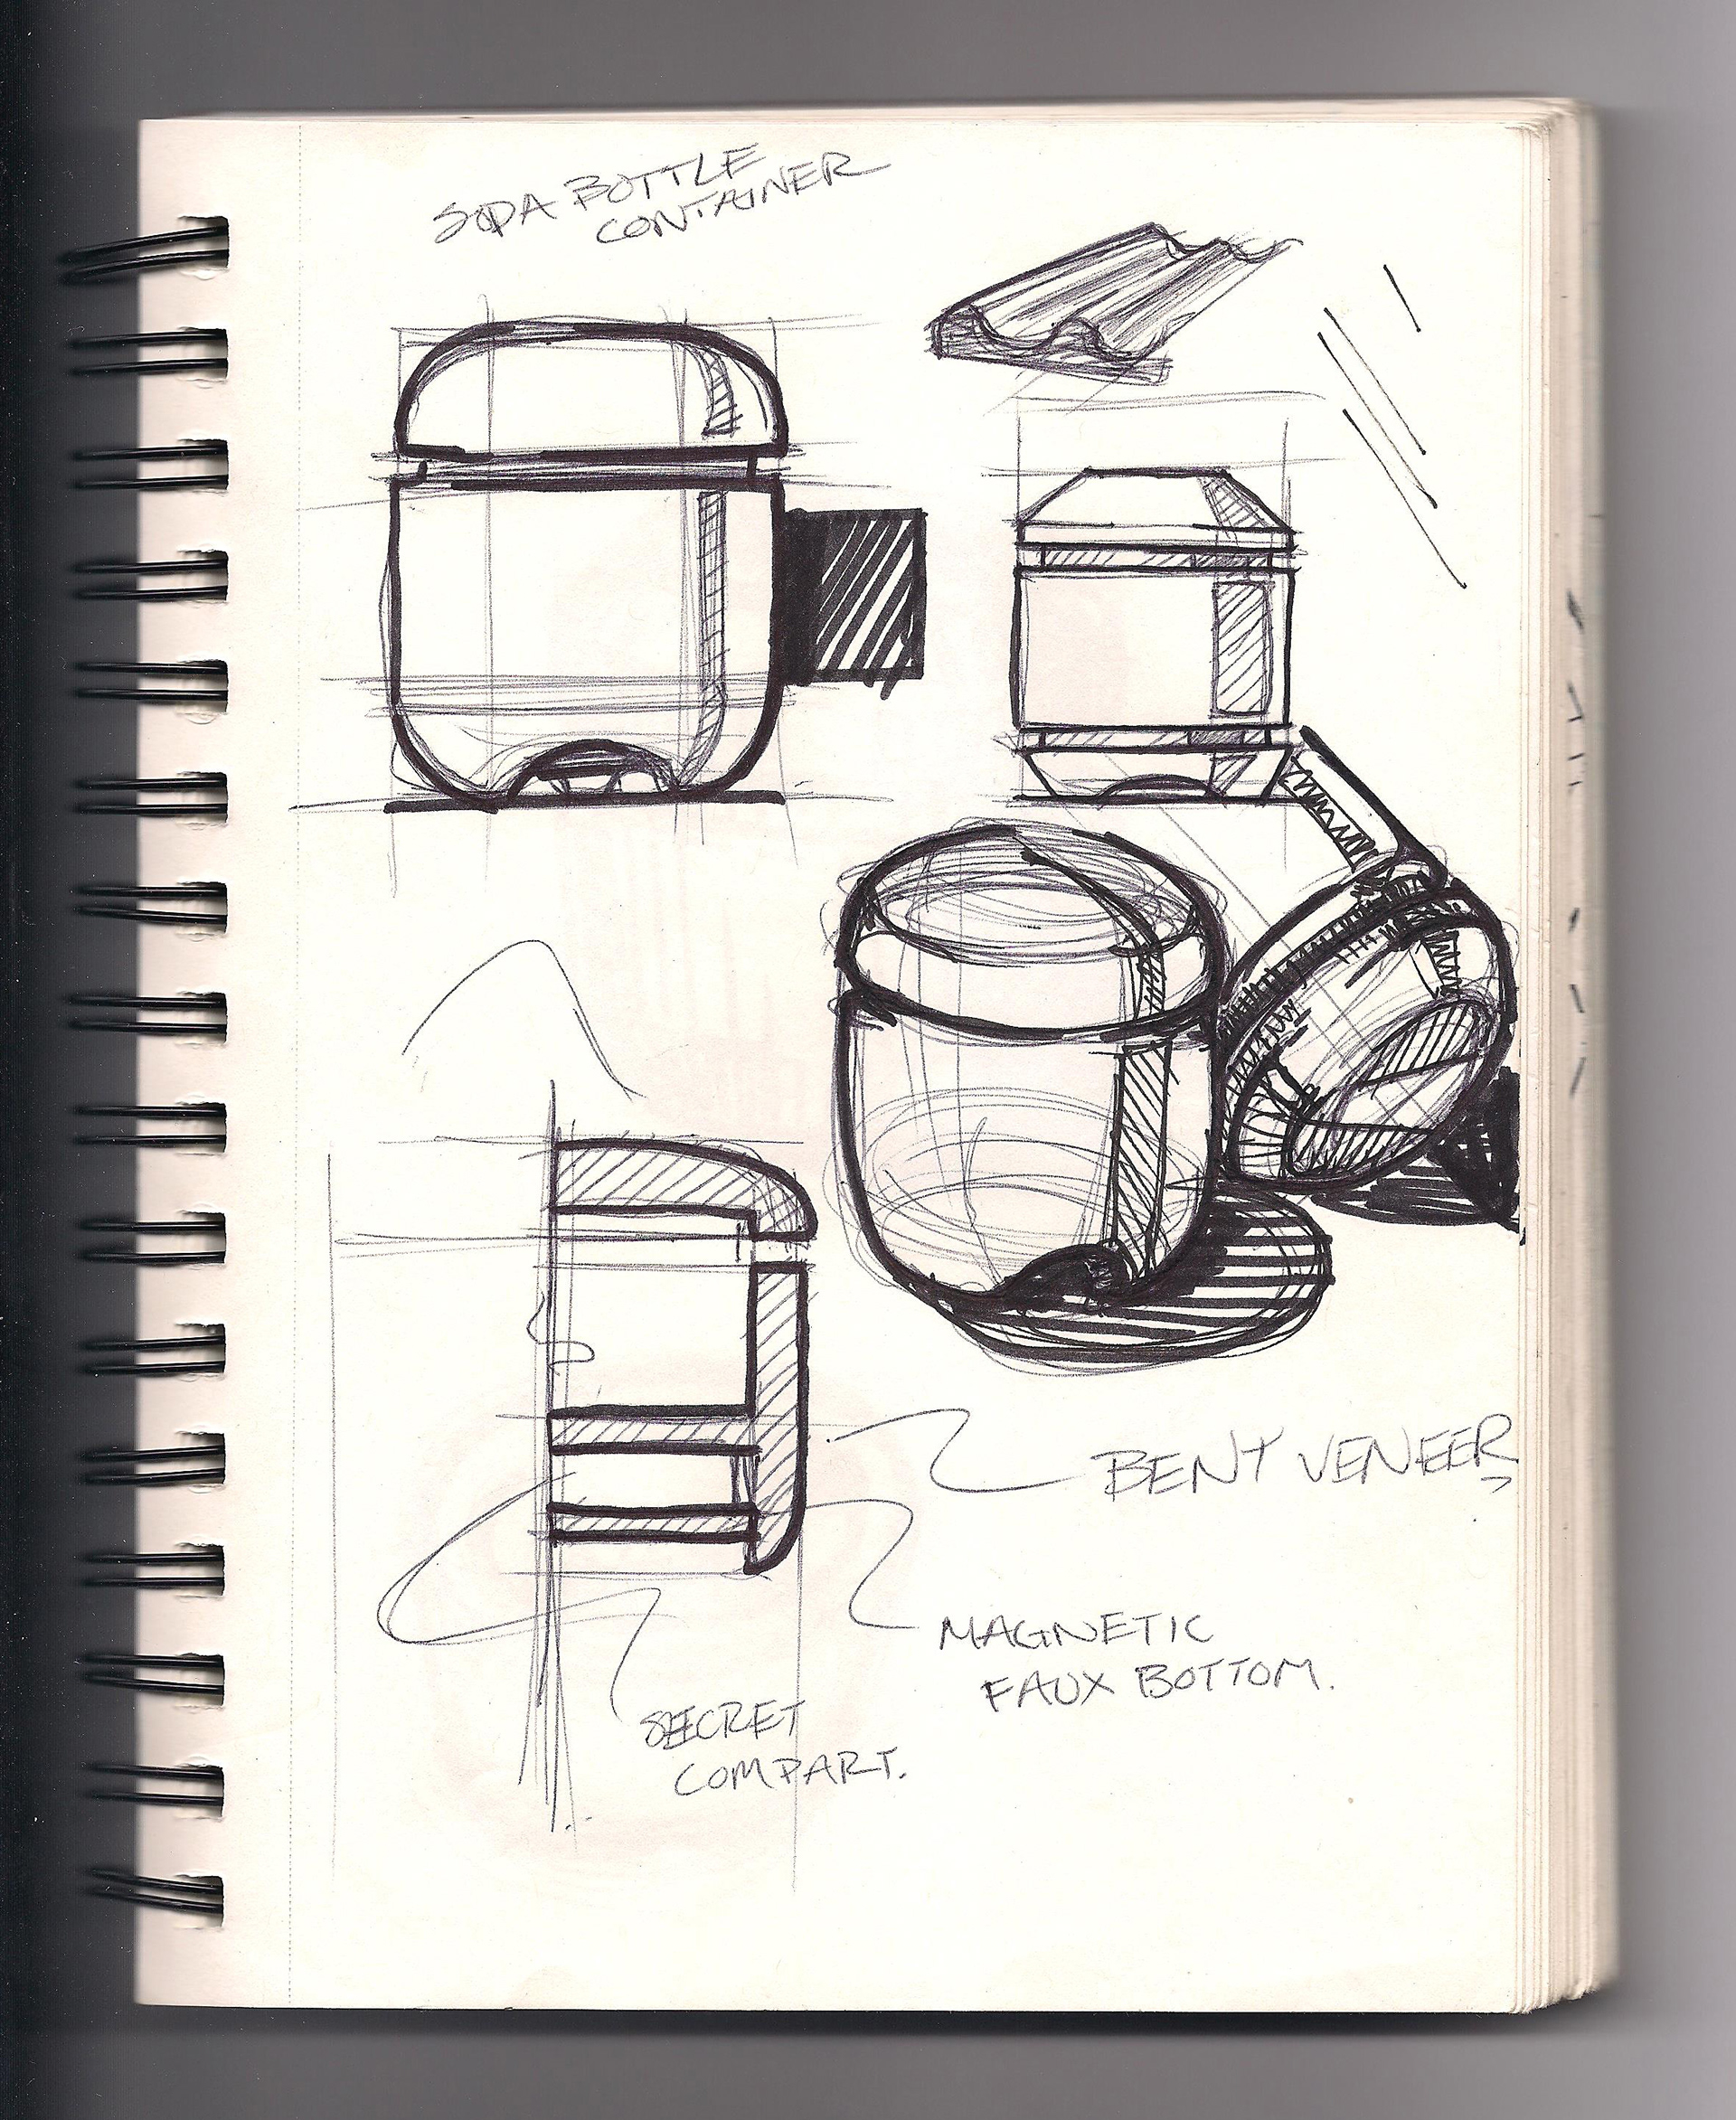 SODA BOTTLE
CONTAINER
BENT VENEER
MAGNETIC
FAUX BOTTOM.
SECRET
COMPART.